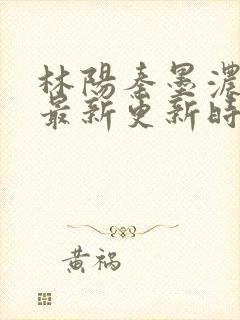 林陽秦墨濃
最新更新時
黃禍